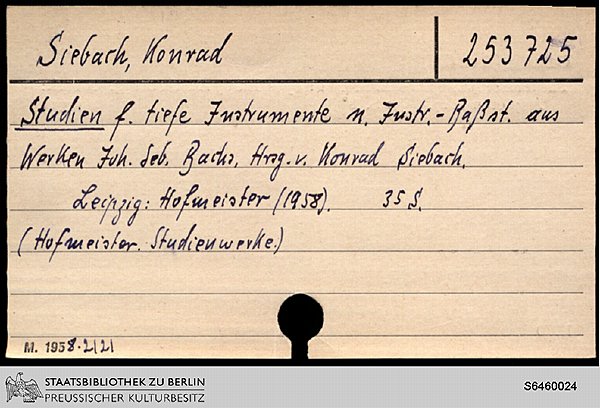 Siebach, Konrad
253 725
Studien f. tiefe Instrumente n. Instr.-Baßst. aus
Werken Joh. Seb. Bachs, Hrsg. v. Konrad Siebach.
Leipzig: Hofmeister (1958). 35 S.
(Hofmeister. Studienwerke.)
M. 1958.2121
STAATSBIBLIOTHEK ZU BERLIN
PREUSSISCHER KULTURBESITZ
S6460024